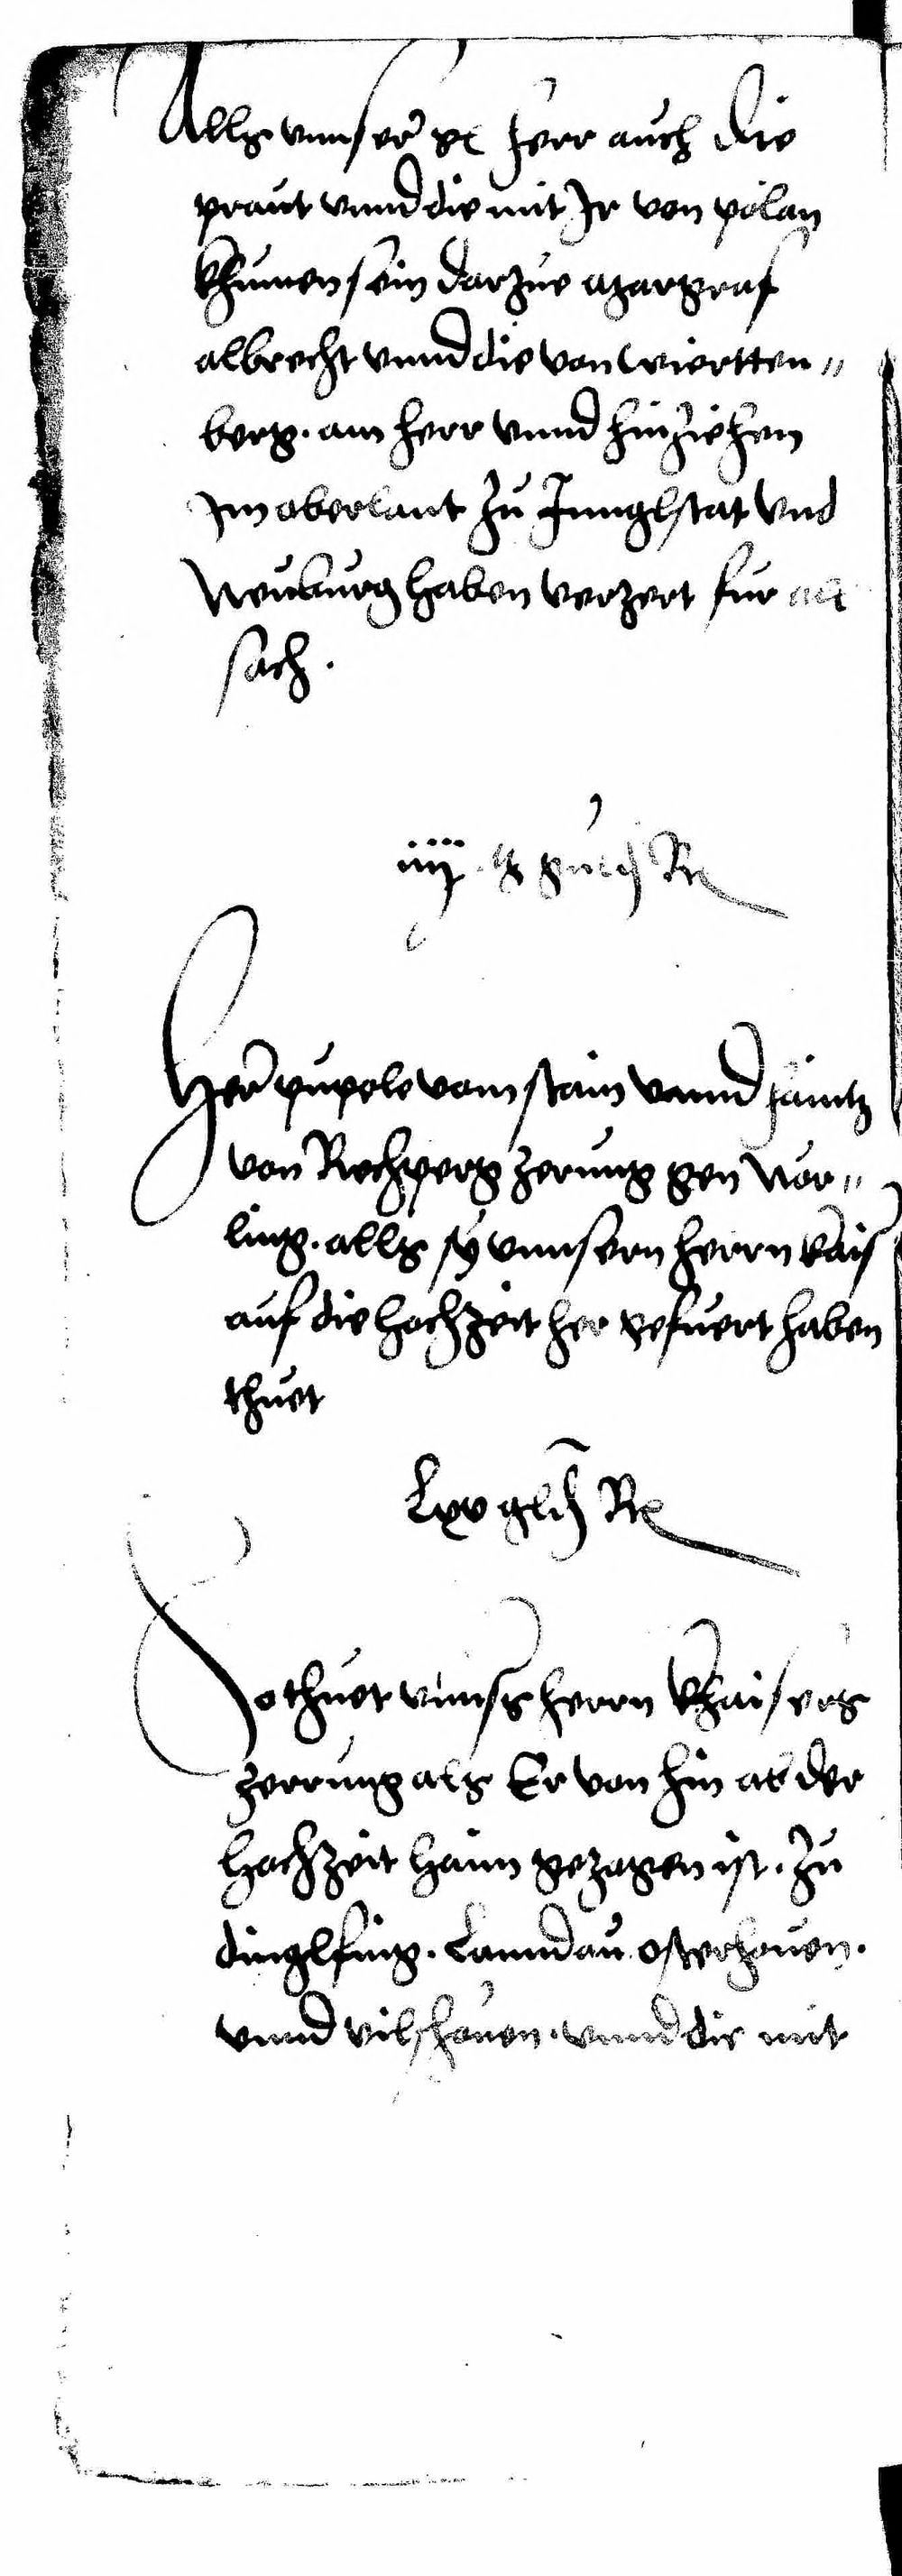 Alls vnnser gt herr auch die
praut vnnd die mit Jr von polan
khumen sein darzue Margraf
albrecht vnnd die von wiertten„
berg. am herr vnnd hinziehen
Jm oberlant zu Jnnglstat vnd
Neuburg haben verzert fur all
sach.
iiij
Herr pupele vom stain vnnd haintz
von Rechperg zerung gen Nor„
ling. alls sy vnnsern herrn kais
auf die hochzeit her gefuert haben
thuet
Lxv gld R
So thuet vnnsers herrn khaisers
zerrung als Er von hin ab der
hochzeit haim gezogen ist. zu
dinglfing. Lanndau. osterhouen.
vnnd vilshouen. vnnd die mit